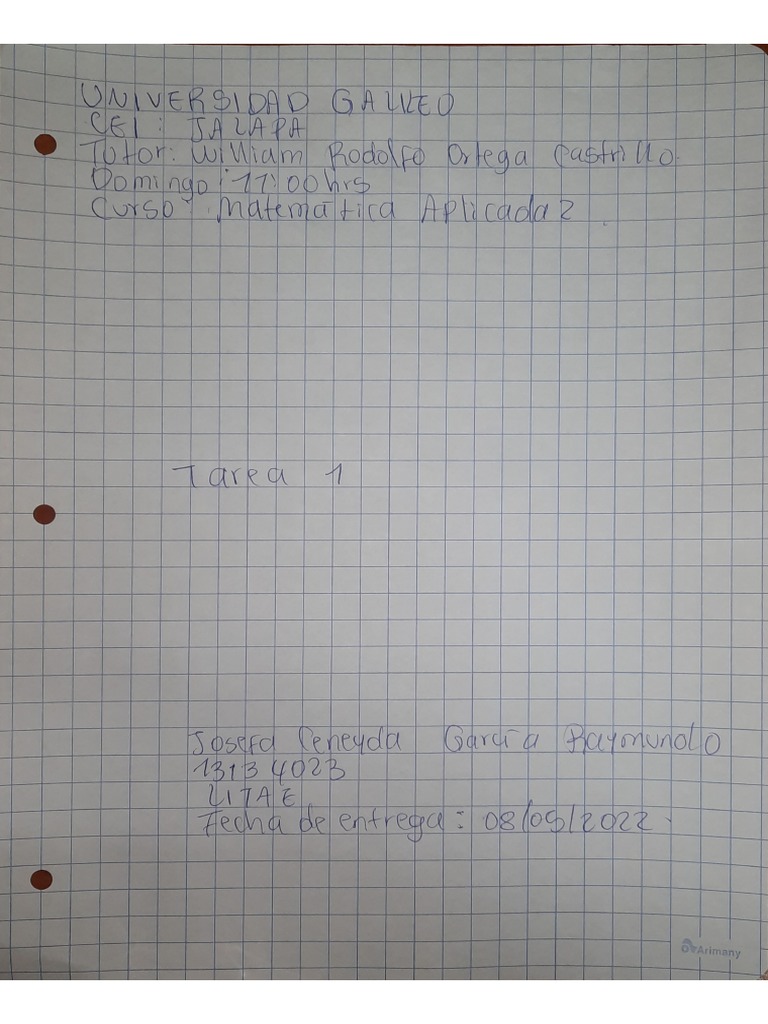 UNIVERSIDAD GALILEO
CEI: JALAPA
Tutor: William Rodolfo Ortega Castrillo
Domingo: 11:00hrs
Curso: Matemática Aplicada 2
Tarea 1
Josefa Ceneyda García Raymundo
13134023
LITAE
Fecha de entrega: 08/05/2022
Arimany